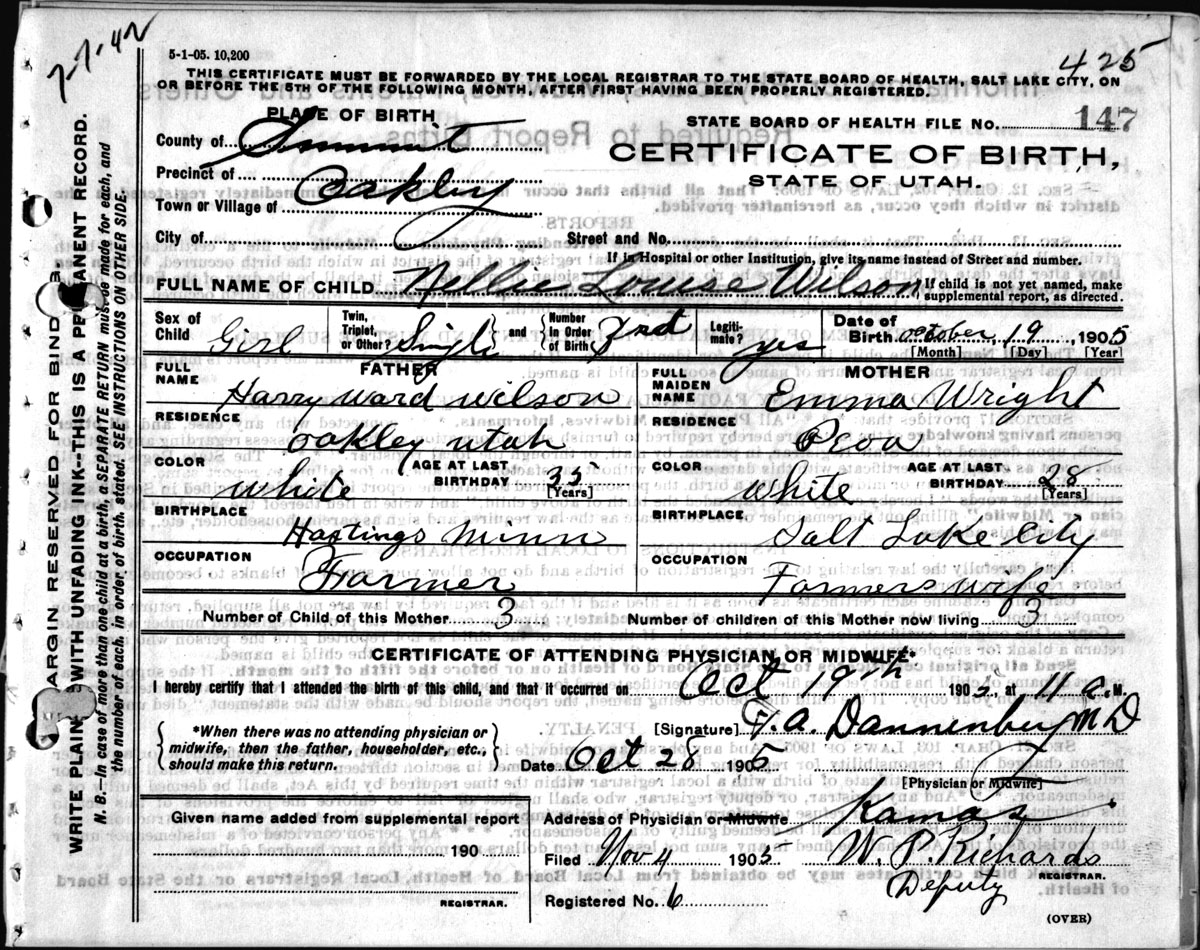 7-7-42
5-1-05. 10,200
425
THIS CERTIFICATE MUST BE FORWARDED BY THE LOCAL REGISTRAR TO THE STATE BOARD OF HEALTH, SALT LAKE CITY, ON
OR BEFORE THE 5TH OF THE FOLLOWING MONTH, AFTER FIRST HAVING BEEN PROPERLY REGISTERED.
PLACE OF BIRTH
STATE BOARD OF HEALTH FILE No. 147
County of Summit
CERTIFICATE OF BIRTH,
STATE OF UTAH.
Precinct of Oakley
Town or Village of
City of Street and No.
If in Hospital or other Institution, give its name instead of Street and number.
FULL NAME OF CHILD Nellie Louise Wilson { If child is not yet named, make
supplemental report, as directed.
Sex of Child Girl Twin, Triplet, or Other? Single } and { Number in Order of Birth 3rd Legitimate? yes Date of Birth October 19, 1905
[Month] [Day] [Year]
FATHER MOTHER
FULL NAME Harry Ward Wilson FULL MAIDEN NAME Emma Wright
RESIDENCE Oakley Utah RESIDENCE Peoa
COLOR White AGE AT LAST BIRTHDAY 35 [Years] COLOR White AGE AT LAST BIRTHDAY 28 [Years]
BIRTHPLACE Hastings Minn BIRTHPLACE Salt Lake City
OCCUPATION Farmer OCCUPATION Farmers wife
Number of Child of this Mother 3 Number of children of this Mother now living 3
CERTIFICATE OF ATTENDING PHYSICIAN OR MIDWIFE.*
I hereby certify that I attended the birth of this child, and that it occurred on Oct 19th 1905, at 11 a. M.
[Signature] F. A. Dannenberg M D
{ *When there was no attending physician or
midwife, then the father, householder, etc.,
should make this return. }
Date Oct 28 1905
[Physician or Midwife]
Given name added from supplemental report
190
REGISTRAR.
Address of Physician or Midwife Kamas
Filed Nov 4 1905 W. P. Richards
REGISTRAR.
Deputy
Registered No. 6
(OVER)
MARGIN RESERVED FOR BINDING.
WRITE PLAINLY WITH UNFADING INK--THIS IS A PERMANENT RECORD.
N. B.—In case of more than one child at a birth, a SEPARATE RETURN must be made for each, and
the number of each, in order of birth, stated. SEE INSTRUCTIONS ON OTHER SIDE.